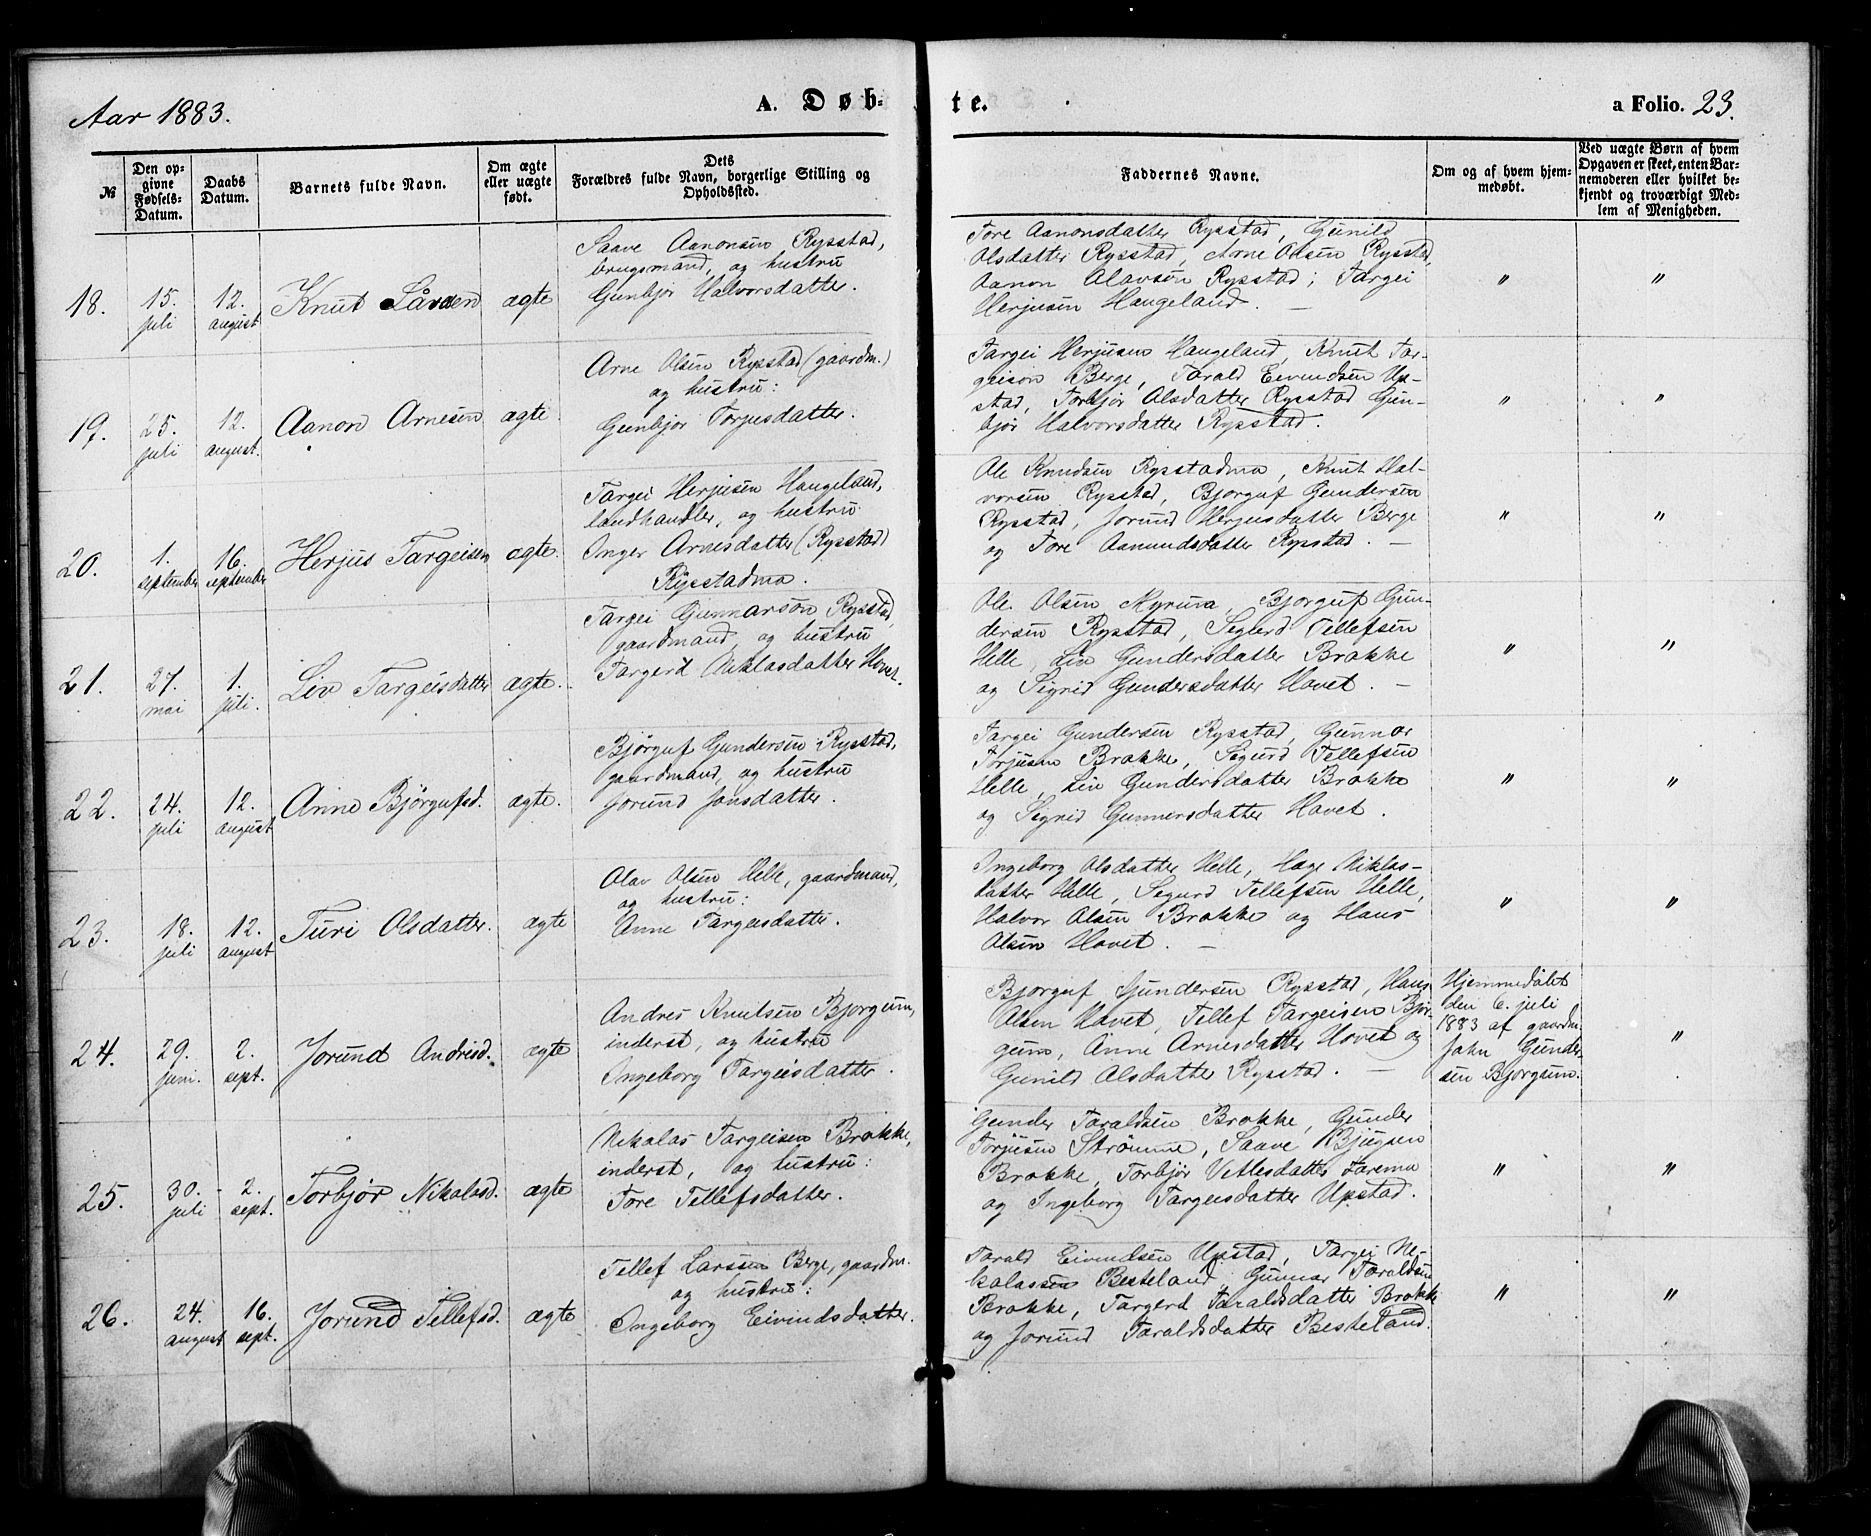 Aar 1883.
A. Døb-
te.
a Folio. 23.
№
Den op-
givne
Fødsels-
Datum.
Daabs
Datum.
Barnets fulde Navn.
Om ægte
eller uægte
født.
Dets
Forældres fulde Navn, borgerlige Stilling og
Opholdssted.
Faddernes Navne.
Om og af hvem hjem-
medøbt.
Ved uægte Børn af hvem
Opgaven er skeet, enten Bar-
nemoderen eller hvilket be-
kjendt og troværdigt Med-
lem af Menigheden.
18.
15.
juli
12.
august
Knut Såvesen
ægte
Saave Aanonsen Rysstad,
brugsmand, og hustru
Gunbjør Halvorsdatter.
Tore Aanonsdatter Rysstad, Gunild
Olsdatter Rysstad, Arne Olsen Rysstad,
Aanon Olavsøn Rysstad; Targei
Herjusen Haugeland. —
"
"
19.
25.
juli
12.
august.
Aanon Arnesen
ægte.
Arne Olsen Rysstad (gaardm.)
og hustru:
Gunbjør Torjusdatter.
Targei Herjusen Haugeland, Knut Tar-
geison Berge, Tarald Eivindsen Up-
stad, Torbjør Olsdatter Rysstad Gun-
bjør Halvorsdatter Rysstad.
"
"
20.
1.
september
16.
september
Herjus Targeisen
ægte.
Targei Herjusen Haugeland,
landhandler, og hustru
Inger Arnesdatter (Rysstad)
Rysstadmo.
Ole Knudsen Rysstadmo, Knut Hal-
vorsen Rysstad, Bjorguf Gundersen
Rysstad, Jorund Herjusdatter Berge
og Tore Aamundsdatter Rysstad. —
"
"
21.
27.
mai
1.
juli.
Liv Targeisdatter
ægte.
Targei Gunnarson Rysstad,
gaardmand, og hustru
Targerd Niklasdatter Hovet.
Ole Olsen Myrum, Bjorguf Gun-
dersen Rysstad, Sigurd Tellefsen
Helle, Liv Gundersdatter Brokke
og Sigrid Gundersdatter Hovet. —
"
"
22.
24.
juli
12.
august
Anne Bjørgufsd.
ægte.
Bjørguf Gundersen Rysstad,
gaardmand, og hustru
Jorund Jonsdatter.
Targei Gundersen Rysstad, Gunnar
Torjusen Brokke, Sigurd Tellefsen
Helle, Liv Gundersdatter Brokke
og Sigrid Gunnersdatter Hovet.
"
"
23.
18.
juli
12.
august
Turi Olsdatter.
ægte
Olav Olsen Helle, gaardmand,
og hustru:
Anne Targeisdatter.
Ingeborg Olsdatter Helle, Hæge Niklas-
datter Helle, Sigurd Tellefsen Helle,
Halvor Olsen Brokke og Hans
Olsen Hovet. —
"
"
24.
29.
juni.
2.
sept.
Jorund Andresd.
ægte
Andres Knutsen Bjorgum,
inderst, og hustru
Ingeborg Targeisdatter.
Bjorguf Gundersen Rysstad, Hans
Olsen Hovet, Tellef Targeisen Bjor-
gum, Anne Arnesdatter Hovet og
Gunild Olsdatter Rysstad. —
Hjemmedøbt
den 6. juli
1883 af gaardm.
John Gunder-
sen Bjorgum.
"
25.
30.
juli
2.
sept.
Torbjør Nikolasd.
ægte
Nikolas Targeisen Brokke,
inderst, og hustru:
Tore Tellefsdatter.
Gunder Taraldsen Brokke, Gunder
Torjusen Strømme, Saave Bjugsen
Brokke, Torbjør Vetlesdatter Faremo
og Ingeborg Targeisdatter Upstad.
"
"
26.
24.
august
16.
sept.
Jorund Tellefsd.
ægte
Tellef Larssen Berge, gaardm.
og hustru:
Ingeborg Eivindsdatter.
Tarald Eivindsen Upstad, Targei Ni-
kolassen Besteland, Gunnar Taraldsen
Brokke, Targerd Taraldsdatter Brokke
og Jorund Taraldsdatter Besteland.
"
"